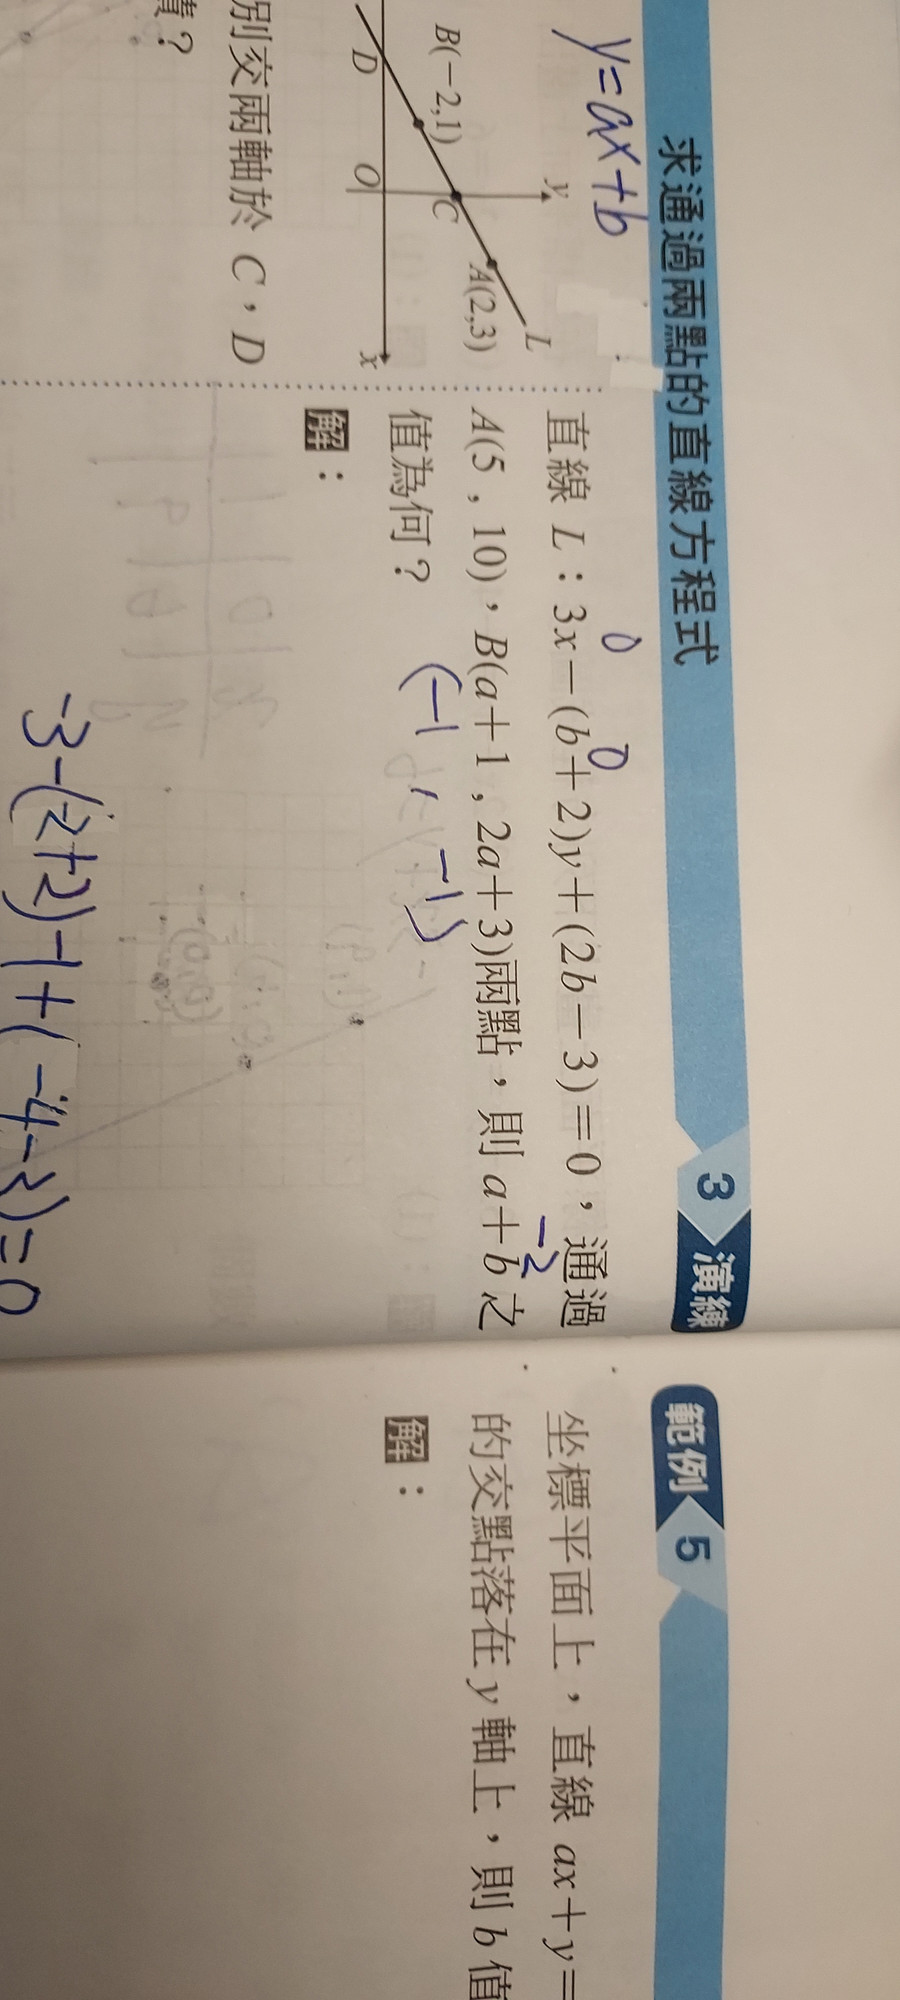 求通過兩點的直線方程式
3 演練
y=ax+b
y
L
A(2,3)
B(−2,1)
C
D
O
x
別交兩軸於 C，D
？
0 0
直線 L：3x−(b+2)y+(2b−3)=0，通過
−2
A(5，10)，B(a+1，2a+3)兩點，則 a+b 之
值為何？
(−1，−1)
解：
−3−(−2+2)−1+(−4−3)=0
範例 5
坐標平面上，直線 ax+y=
的交點落在 y 軸上，則 b 值
解：